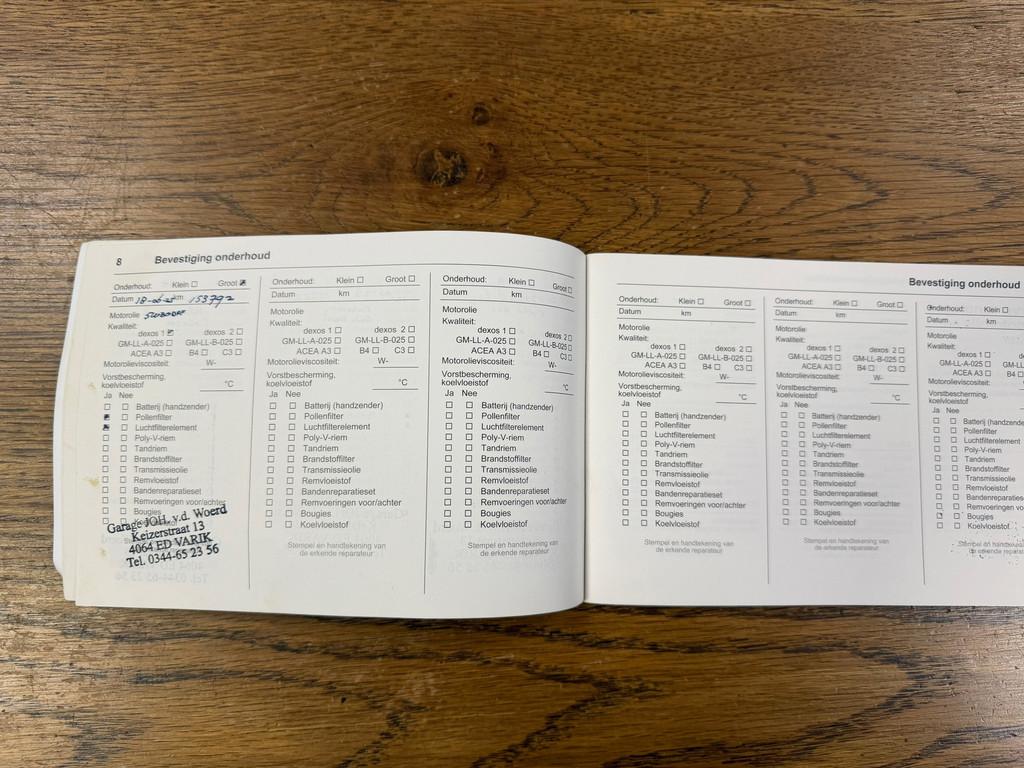 8 Bevestiging onderhoud
Onderhoud: Klein ☐ Groot ☒
Datum 18-06-25 km 153792
Motorolie
Kwaliteit:
dexos 1 ☒ dexos 2 ☐
GM-LL-A-025 ☐ GM-LL-B-025 ☐
ACEA A3 ☐ B4 ☐ C3 ☐
Motorolieviscositeit: W-
Vorstbescherming,
koelvloeistof °C
Ja Nee
☐ ☐ Batterij (handzender)
☒ ☐ Pollenfilter
☒ ☐ Luchtfilterelement
☐ ☐ Poly-V-riem
☐ ☐ Tandriem
☐ ☐ Brandstoffilter
☐ ☐ Transmissieolie
☐ ☐ Remvloeistof
☐ ☐ Bandenreparatieset
☐ ☐ Remvoeringen voor/achter
☐ ☐ Bougies
Garage JOH. v.d. Woerd
Keizerstraat 13
4064 ED VARIK
Tel. 0344-65 23 56
Onderhoud: Klein ☐ Groot ☐
Datum km
Motorolie
Kwaliteit:
dexos 1 ☐ dexos 2 ☐
GM-LL-A-025 ☐ GM-LL-B-025 ☐
ACEA A3 ☐ B4 ☐ C3 ☐
Motorolieviscositeit: W-
Vorstbescherming,
koelvloeistof °C
Ja Nee
☐ ☐ Batterij (handzender)
☐ ☐ Pollenfilter
☐ ☐ Luchtfilterelement
☐ ☐ Poly-V-riem
☐ ☐ Tandriem
☐ ☐ Brandstoffilter
☐ ☐ Transmissieolie
☐ ☐ Remvloeistof
☐ ☐ Bandenreparatieset
☐ ☐ Remvoeringen voor/achter
☐ ☐ Bougies
☐ ☐ Koelvloeistof
Stempel en handtekening van
de erkende reparateur
Onderhoud: Klein ☐ Groot ☐
Datum km
Motorolie
Kwaliteit:
dexos 1 ☐ dexos 2 ☐
GM-LL-A-025 ☐ GM-LL-B-025 ☐
ACEA A3 ☐ B4 ☐ C3 ☐
Motorolieviscositeit: W-
Vorstbescherming,
koelvloeistof °C
Ja Nee
☐ ☐ Batterij (handzender)
☐ ☐ Pollenfilter
☐ ☐ Luchtfilterelement
☐ ☐ Poly-V-riem
☐ ☐ Tandriem
☐ ☐ Brandstoffilter
☐ ☐ Transmissieolie
☐ ☐ Remvloeistof
☐ ☐ Bandenreparatieset
☐ ☐ Remvoeringen voor/achter
☐ ☐ Bougies
☐ ☐ Koelvloeistof
Stempel en handtekening van
de erkende reparateur
Bevestiging onderhoud
Onderhoud: Klein ☐ Groot ☐
Datum km
Motorolie
Kwaliteit:
dexos 1 ☐ dexos 2 ☐
GM-LL-A-025 ☐ GM-LL-B-025 ☐
ACEA A3 ☐ B4 ☐ C3 ☐
Motorolieviscositeit: W-
Vorstbescherming,
koelvloeistof °C
Ja Nee
☐ ☐ Batterij (handzender)
☐ ☐ Pollenfilter
☐ ☐ Luchtfilterelement
☐ ☐ Poly-V-riem
☐ ☐ Tandriem
☐ ☐ Brandstoffilter
☐ ☐ Transmissieolie
☐ ☐ Remvloeistof
☐ ☐ Bandenreparatieset
☐ ☐ Remvoeringen voor/achter
☐ ☐ Bougies
☐ ☐ Koelvloeistof
Stempel en handtekening van
de erkende reparateur
Onderhoud: Klein ☐ Groot ☐
Datum km
Motorolie
Kwaliteit:
dexos 1 ☐ dexos 2 ☐
GM-LL-A-025 ☐ GM-LL-B-025 ☐
ACEA A3 ☐ B4 ☐ C3 ☐
Motorolieviscositeit: W-
Vorstbescherming,
koelvloeistof °C
Ja Nee
☐ ☐ Batterij (handzender)
☐ ☐ Pollenfilter
☐ ☐ Luchtfilterelement
☐ ☐ Poly-V-riem
☐ ☐ Tandriem
☐ ☐ Brandstoffilter
☐ ☐ Transmissieolie
☐ ☐ Remvloeistof
☐ ☐ Bandenreparatieset
☐ ☐ Remvoeringen voor/achter
☐ ☐ Bougies
☐ ☐ Koelvloeistof
Stempel en handtekening van
de erkende reparateur
Onderhoud: Klein ☐
Datum km
Motorolie
Kwaliteit:
dexos 1 ☐
GM-LL-A-025 ☐ GM-LL
ACEA A3 ☐ B4 ☐
Motorolieviscositeit: W-
Vorstbescherming,
koelvloeistof
Ja Nee
☐ ☐ Batterij (handzende
☐ ☐ Pollenfilter
☐ ☐ Luchtfilterelement
☐ ☐ Poly-V-riem
☐ ☐ Tandriem
☐ ☐ Brandstoffilter
☐ ☐ Transmissieolie
☐ ☐ Remvloeistof
☐ ☐ Bandenreparaties
☐ ☐ Remvoeringen vo
☐ ☐ Bougies
☐ ☐ Koelvloeistof
Stempel en handtekening
de erkende reparat